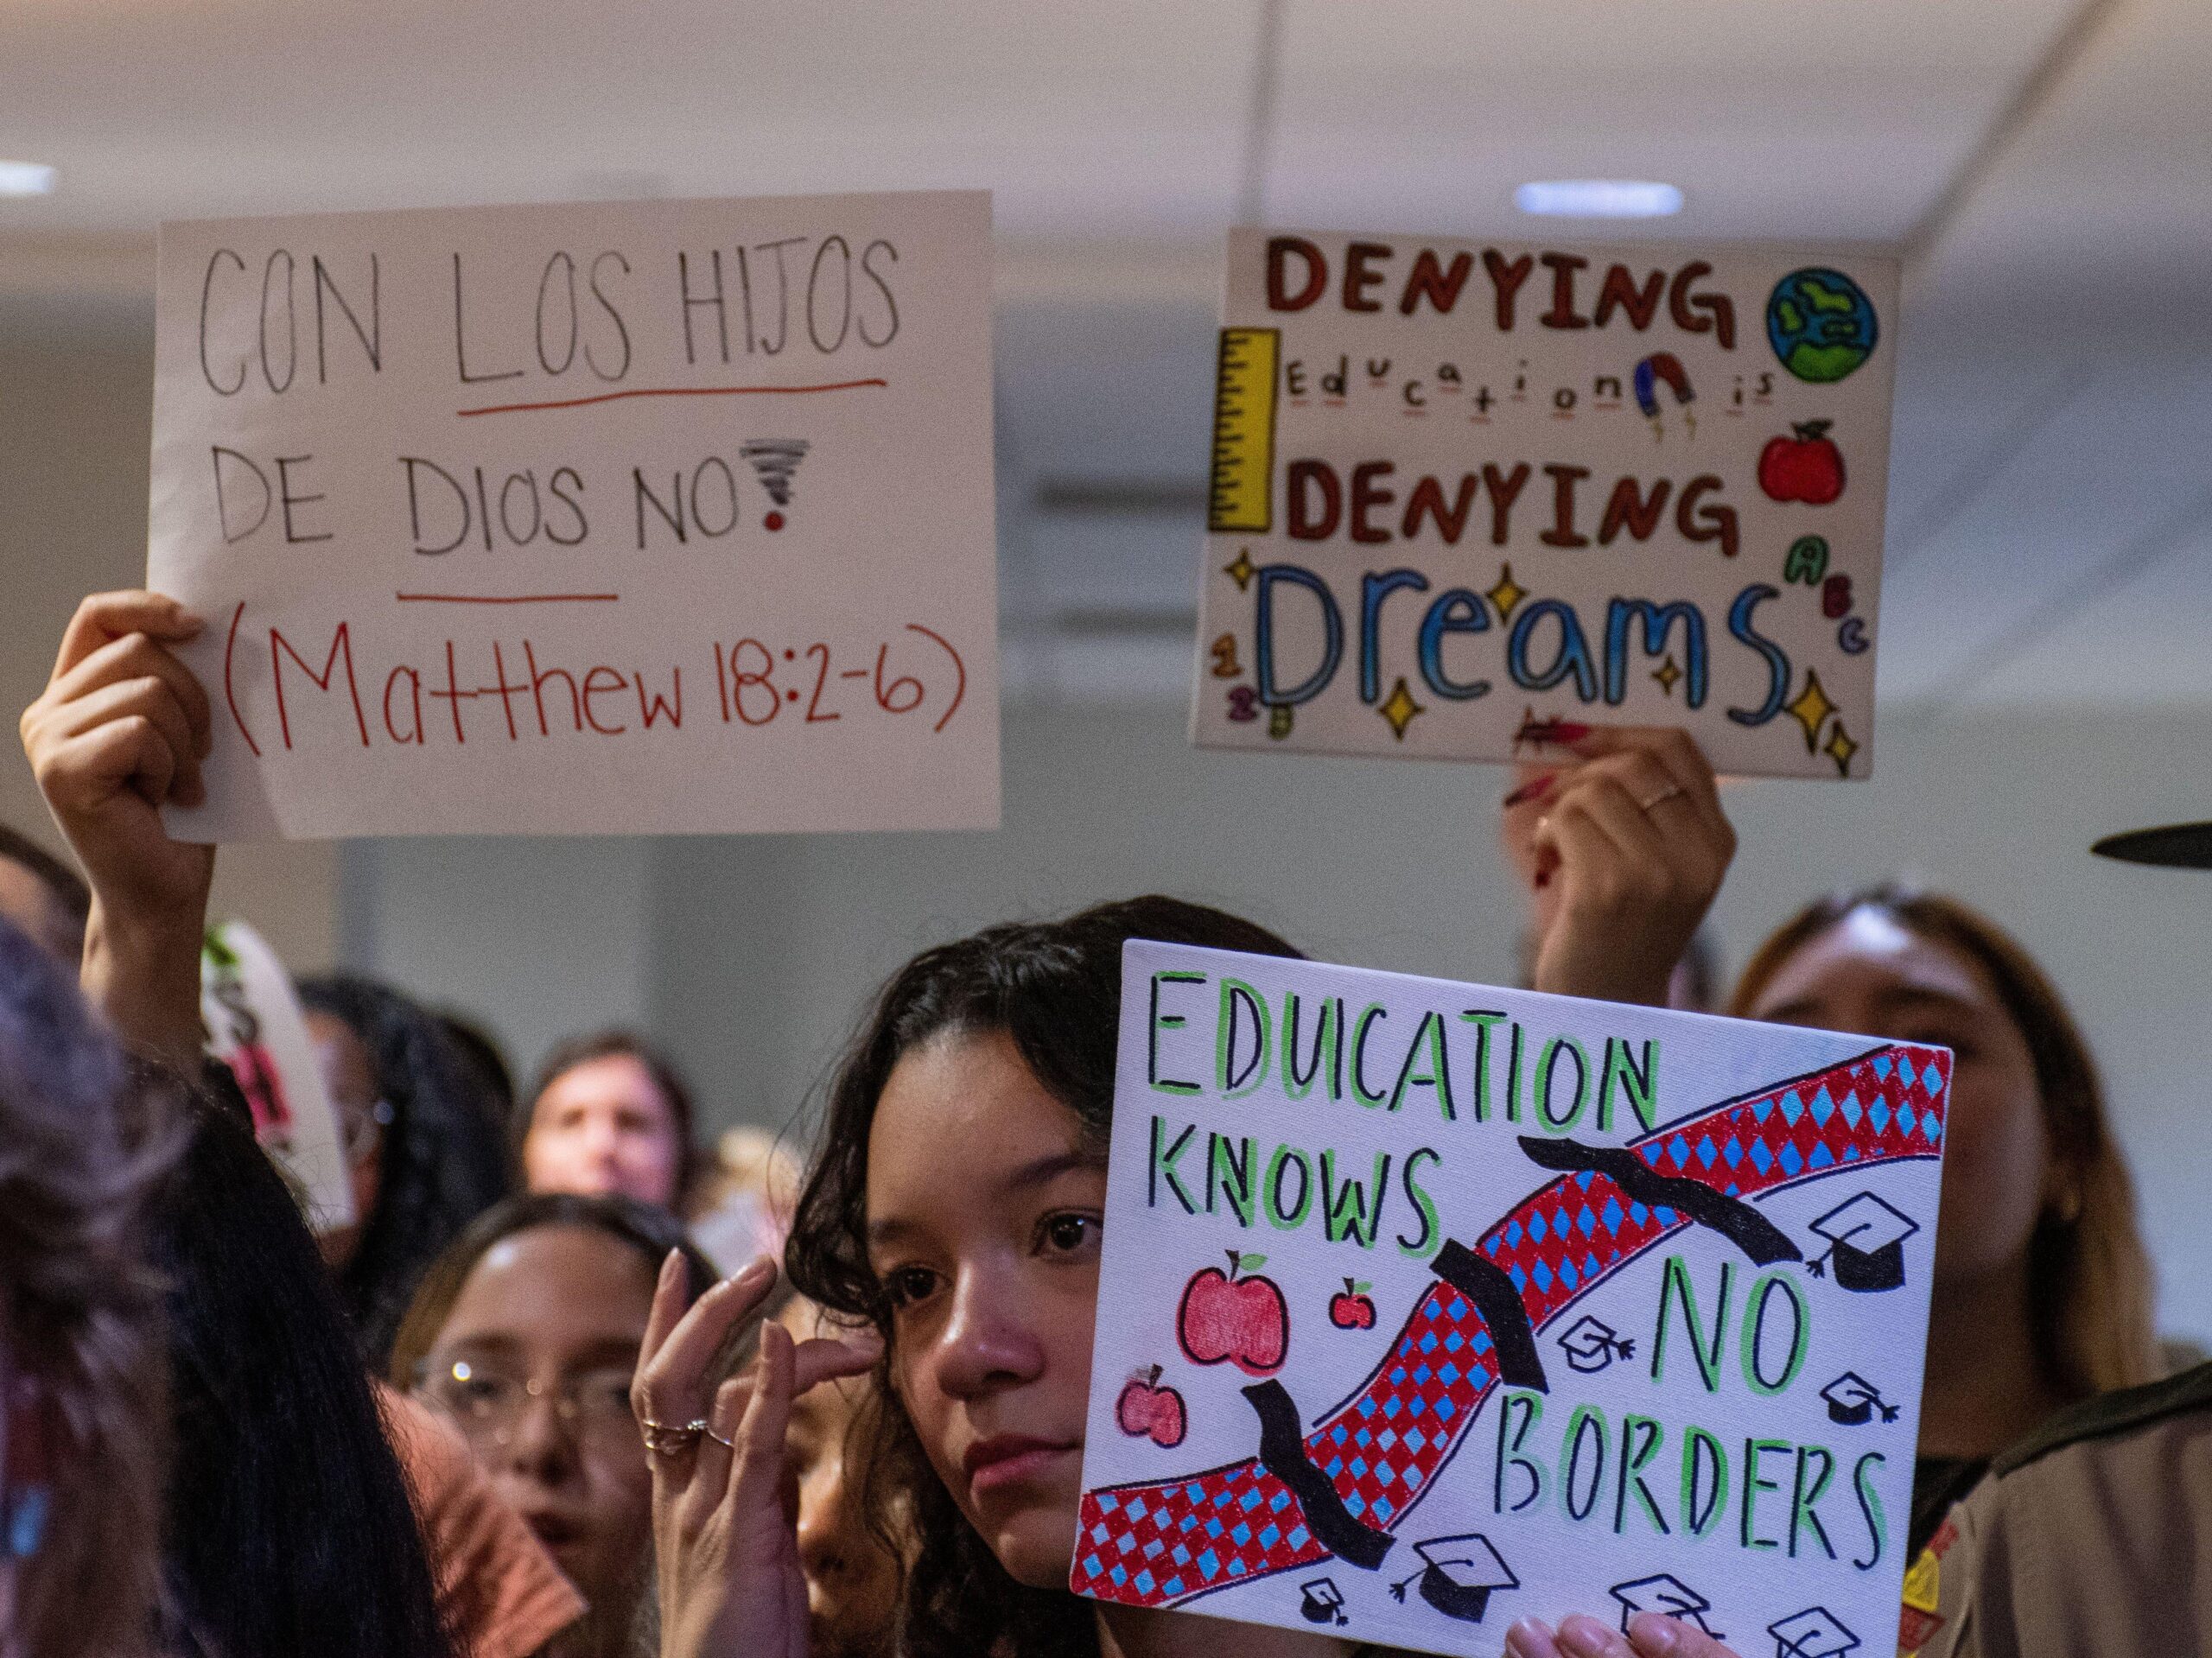 CON LOS HIJOS
DE DIOS NO!
(Matthew 18:2-6)
DENYING
Education is
DENYING
Dreams
A
B
C
1
2
3
EDUCATION
KNOWS
NO
BORDERS